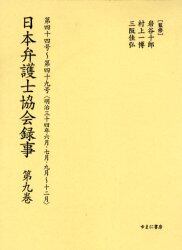 日本弁護士協会録事 第九巻
第四十四号～第四十九号(明治三十四年六月・七月・九月～十二月)
[監修]
岩谷十郎
村上一博
三阪佳弘
ゆまに書房